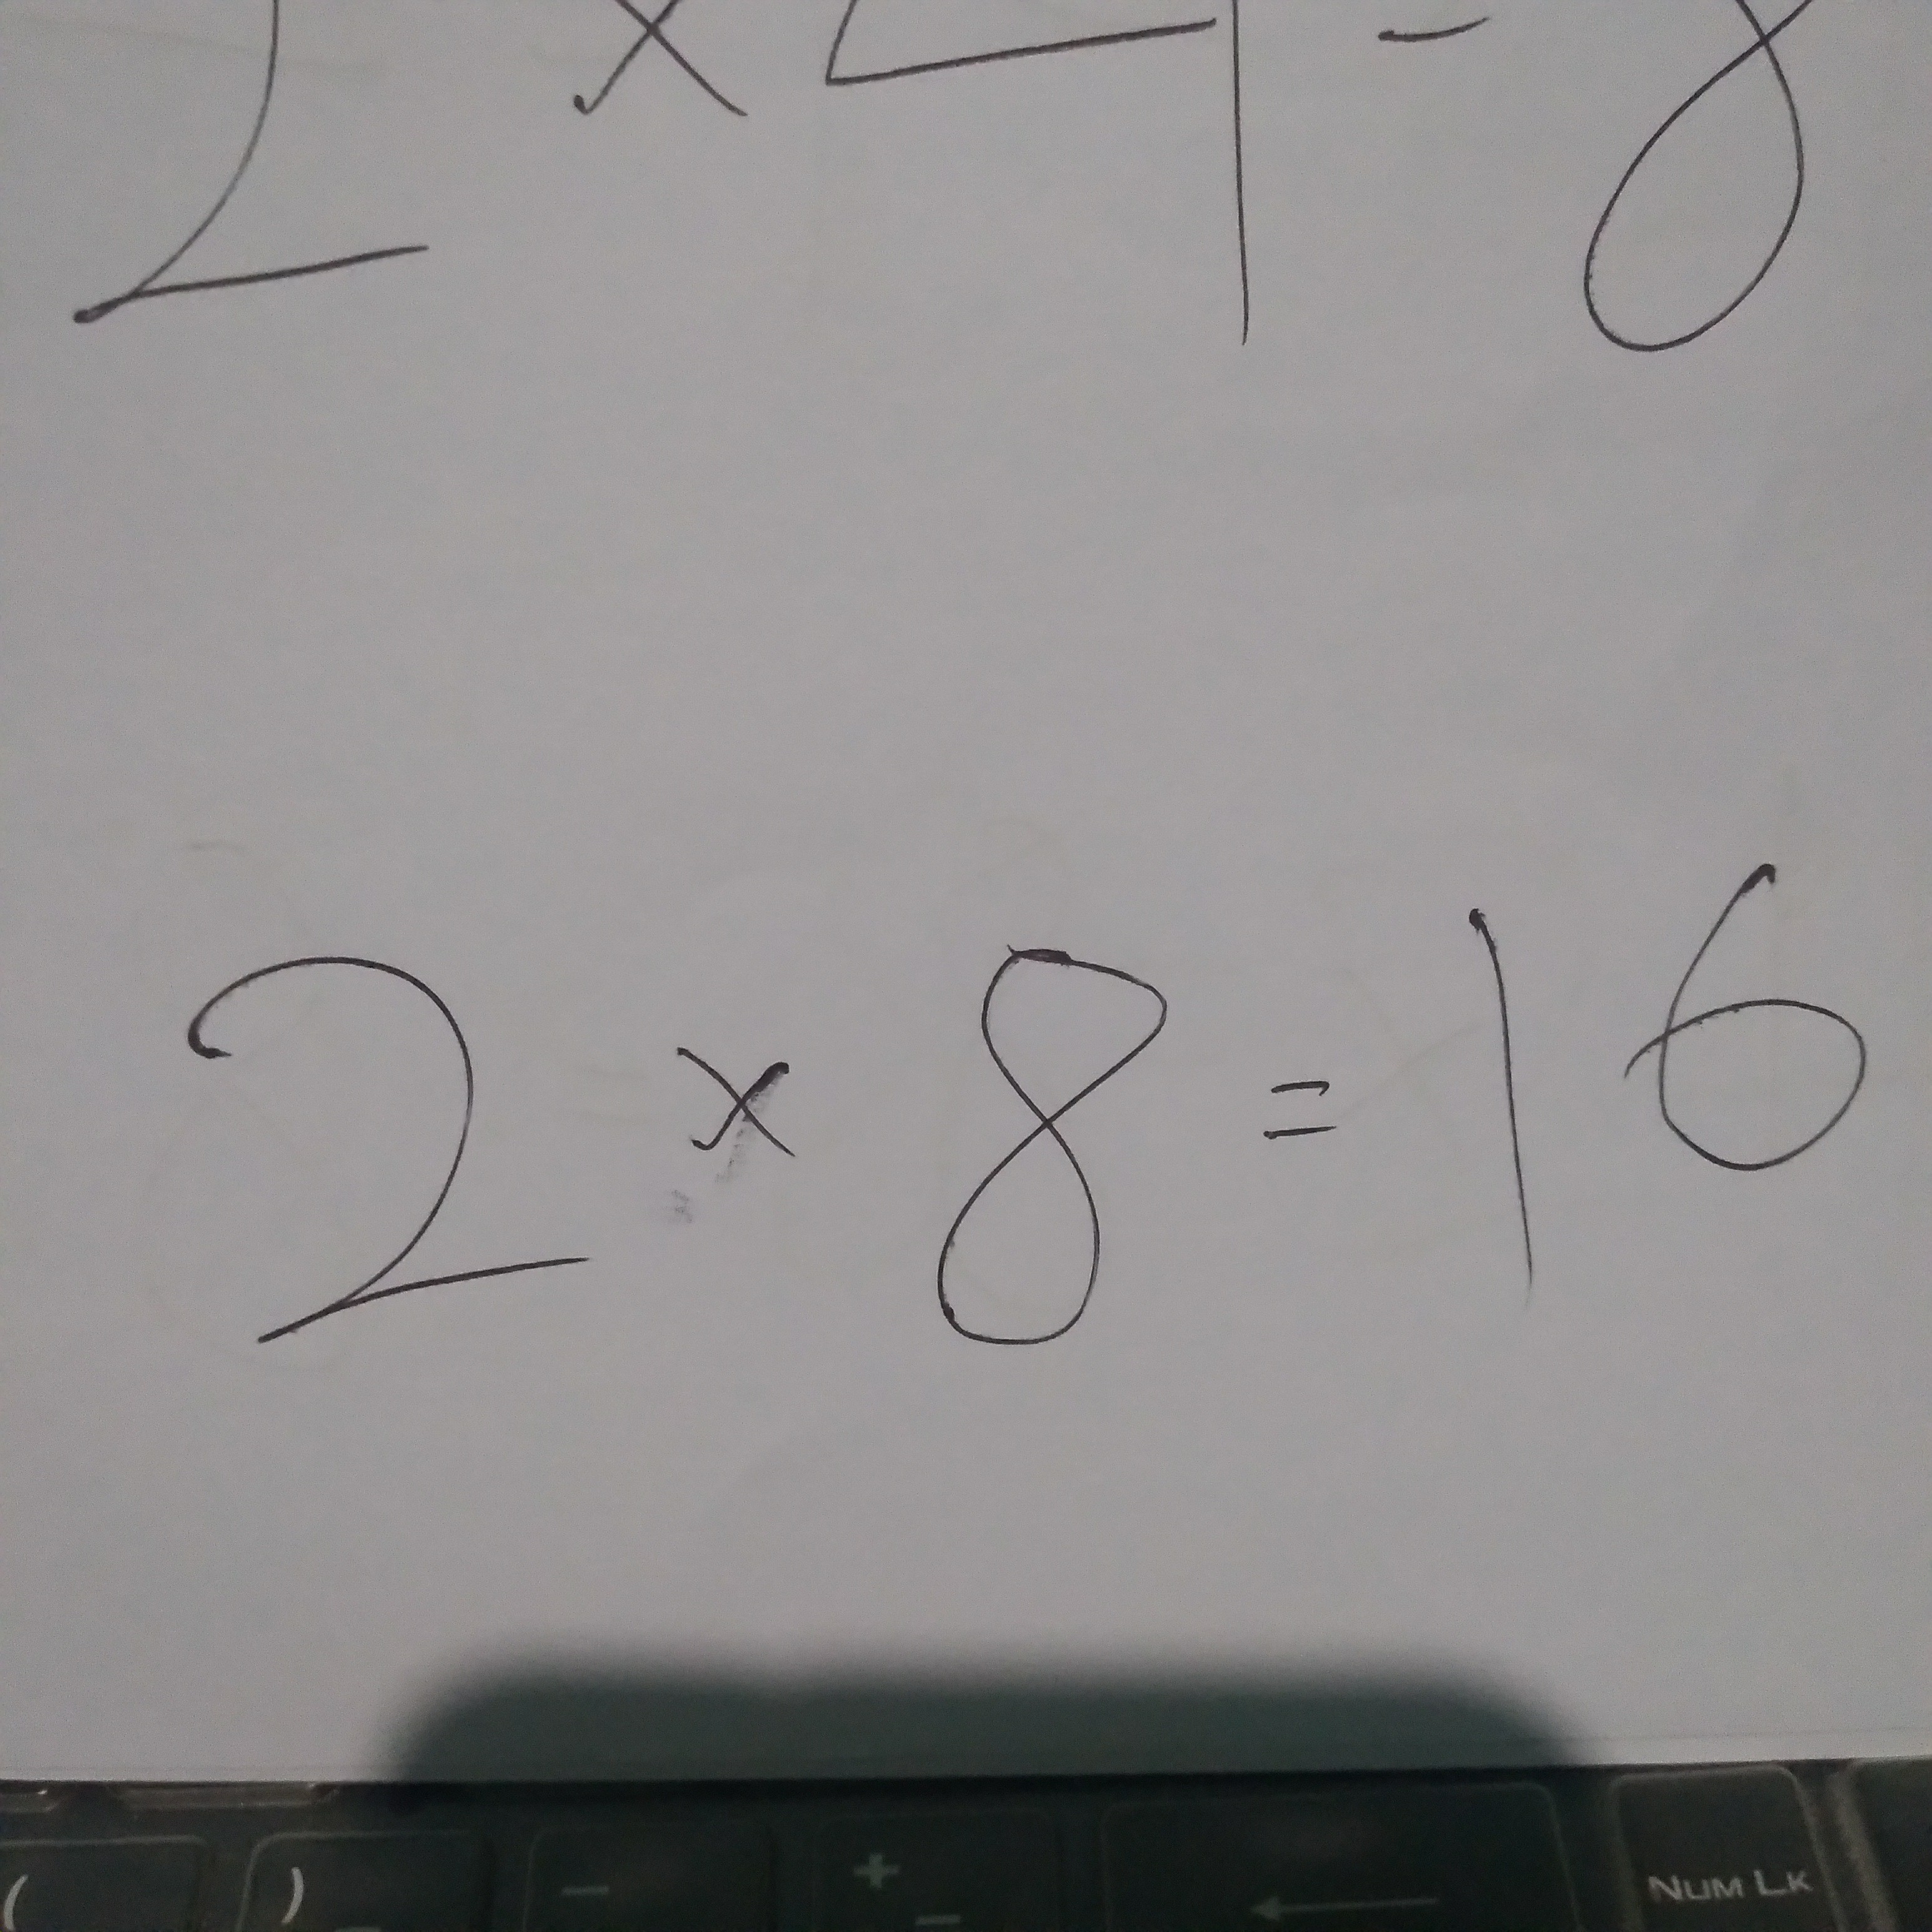 2 × 4 = 8
2 × 8 = 16
( ) - + ←
_ _ NUM LK